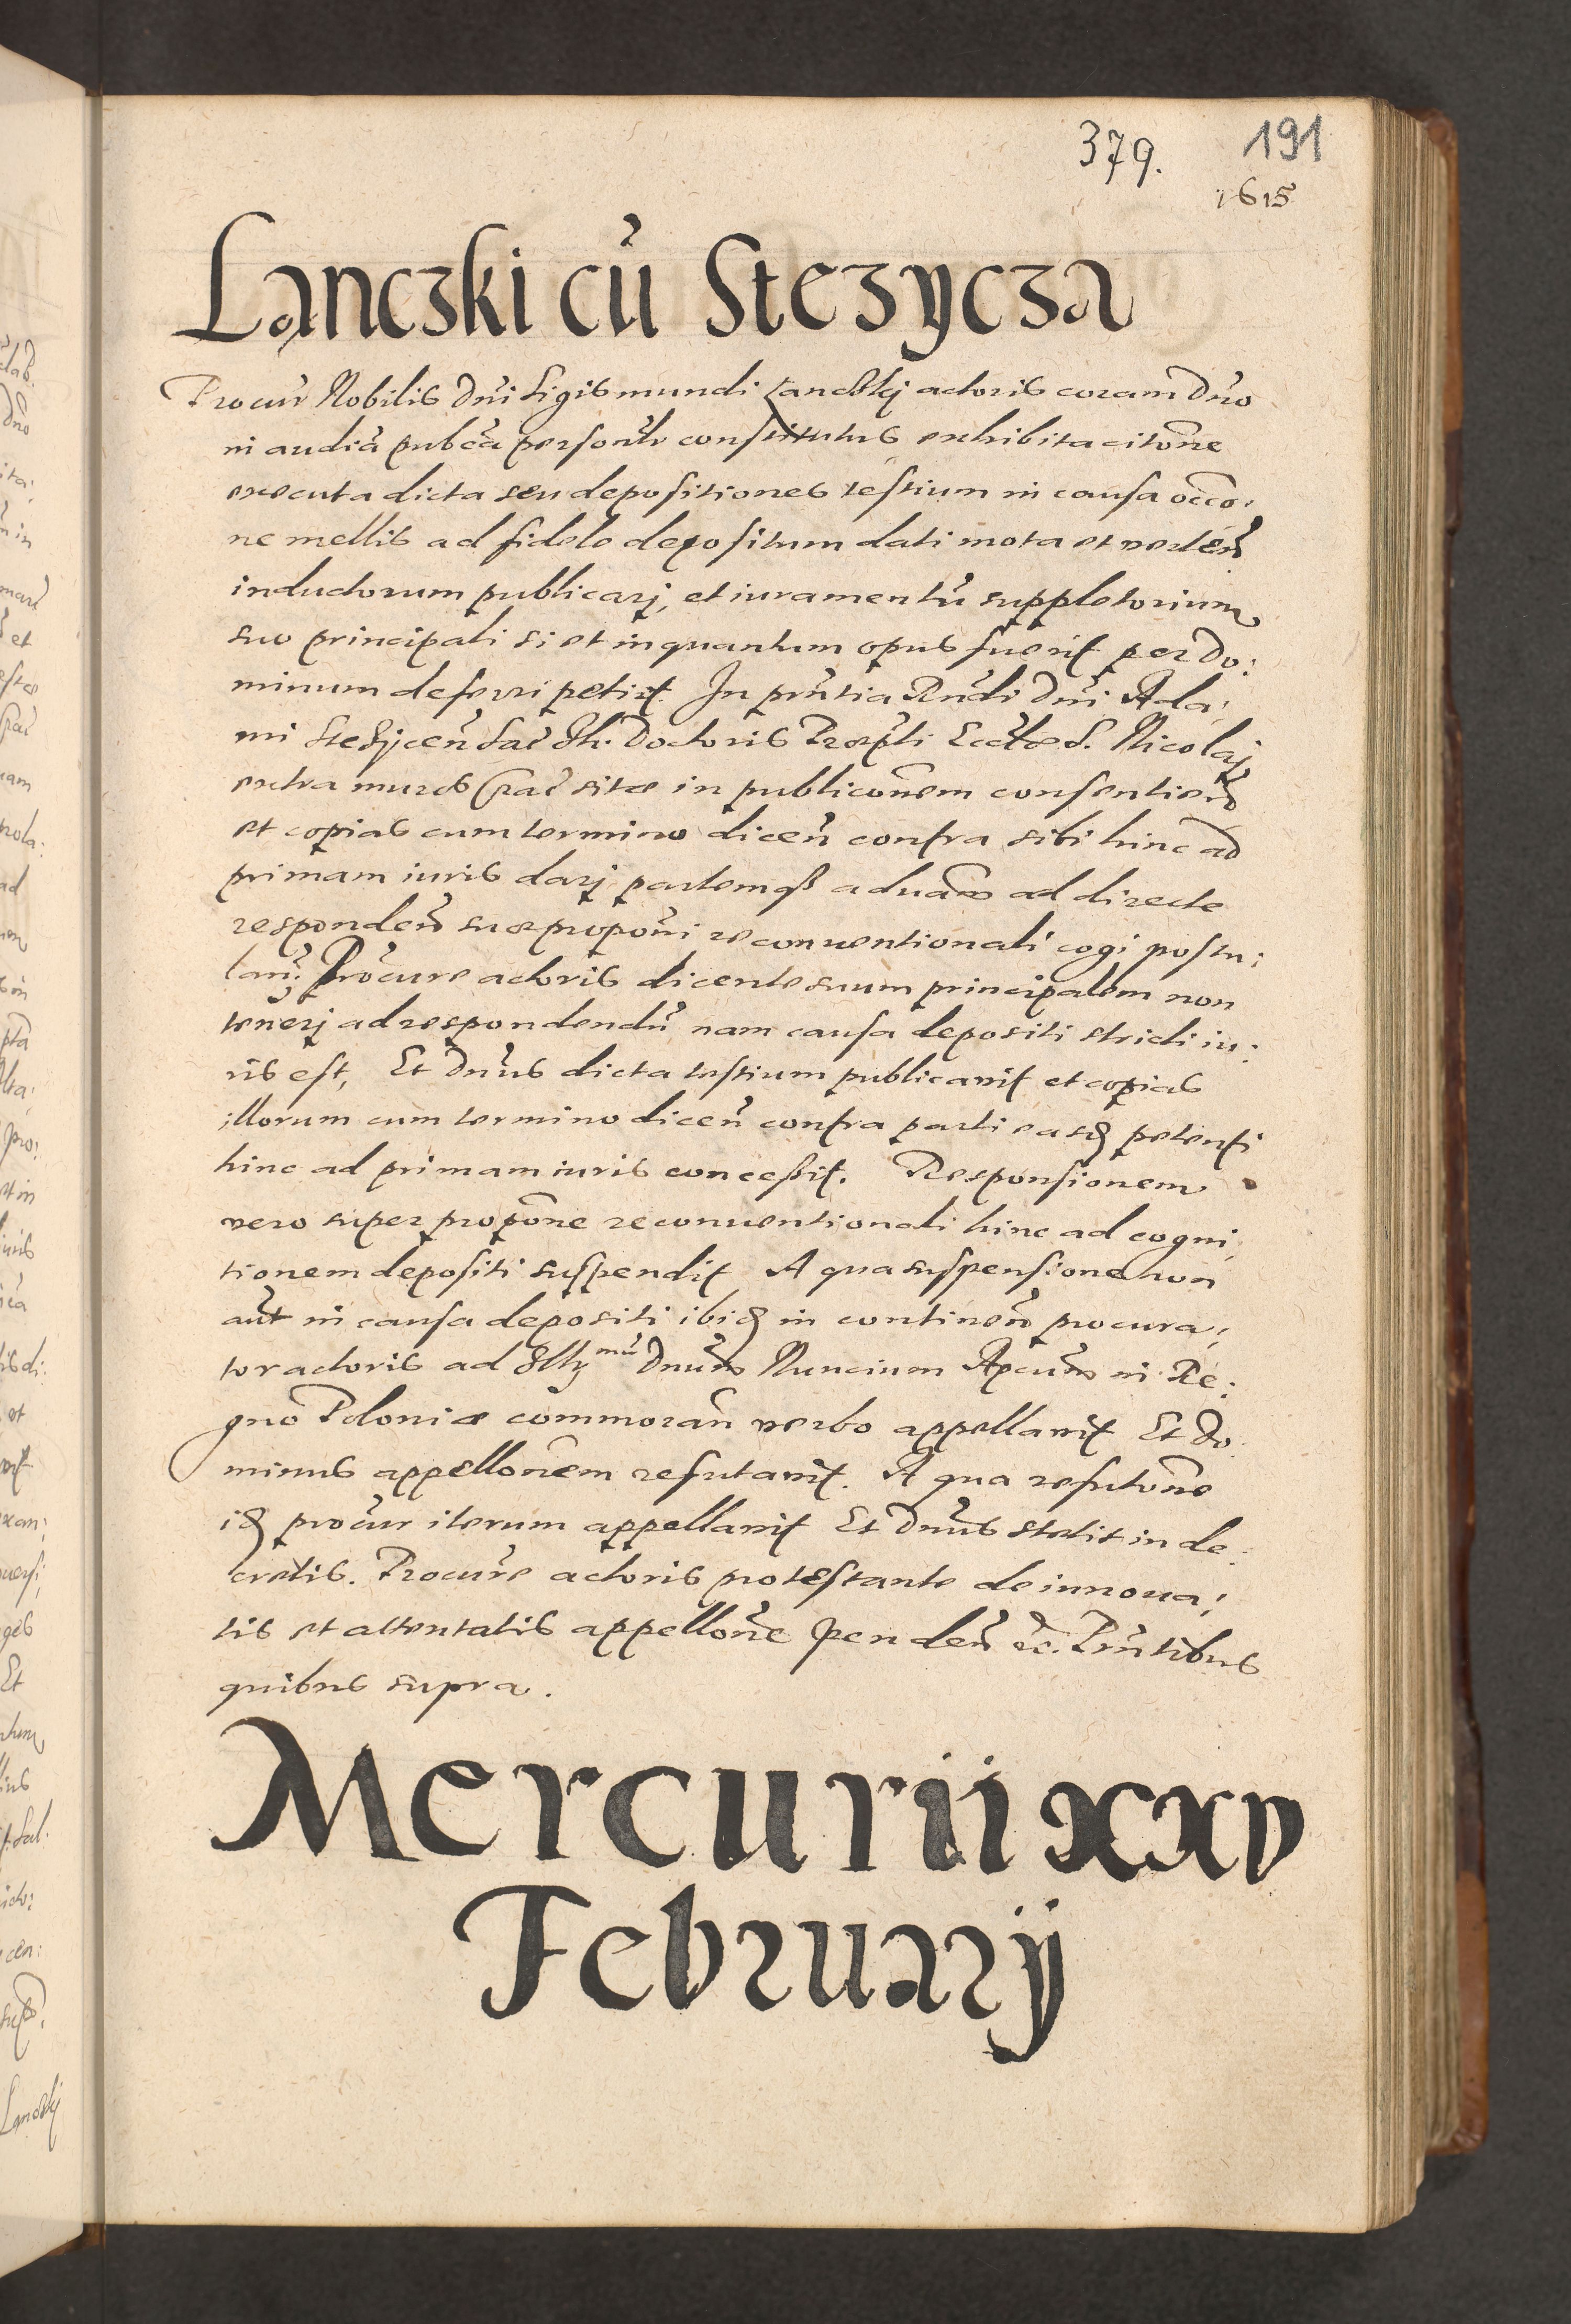 379. 191
1615
Lanczki cũ Stezycza
Procur̃ Nobilis Dñi Sigismundi Lanczkij actoris coram Dño
in audiã pubcã personlr̃ constitutus exhibita citõne
executa dicta seu depositiones testium in causa occo:
ne mellis ad fidele depositum dati mota et verteñ
inductorum publicarj, et iuramentũ suppletorium
suo principali si et inquantum opus fuerit per Do:
minum deferri petijt. In pñtia Rñdi Dñi Ada:
mi Stezÿceñ Sac̃ Th. Doctoris Præpti Eccłæ S. Nicolaj
extra muros Crac̃ sitæ in publicõnem consentieñ
et copias cum termino diceñ contra sibi hinc ad
primam iuris darj partemq̃ aduam̃ ad directe
respondeñ suæ propõni reconuentionali cogi postu:
lañ. Procur̃e actoris dicente suum principalem non
tenerj ad respondendũ nam causa depositi stricti iu:
ris est, Et Dñus dicta testium publicauit et copias
illorum cum termino diceñ contra parti easd̃ petenti
hinc ad primam iuris conceßit. Responsionem
vero super propõne reconuentionali hinc ad cogni
tionem depositi suspendit A qua suspensione non
aũt in causa depositi ibid̃ in contineñ procura:
tor actoris ad Illᵐũ Dñum Nuncium Apcum̃ in Re:
gno Poloniæ commorañ verbo appellauit Et Do
minus appellõnem refutauit. A qua refutõne
id̃ procur̃ iterum appellauit Et Dñus stetit in de:
cretis. Procur̃e actoris protestante de innoua:
tis et attentatis appellõne pendeñ &c. Pñtibus
quibus supra.
Mercurii xxv
Februarij